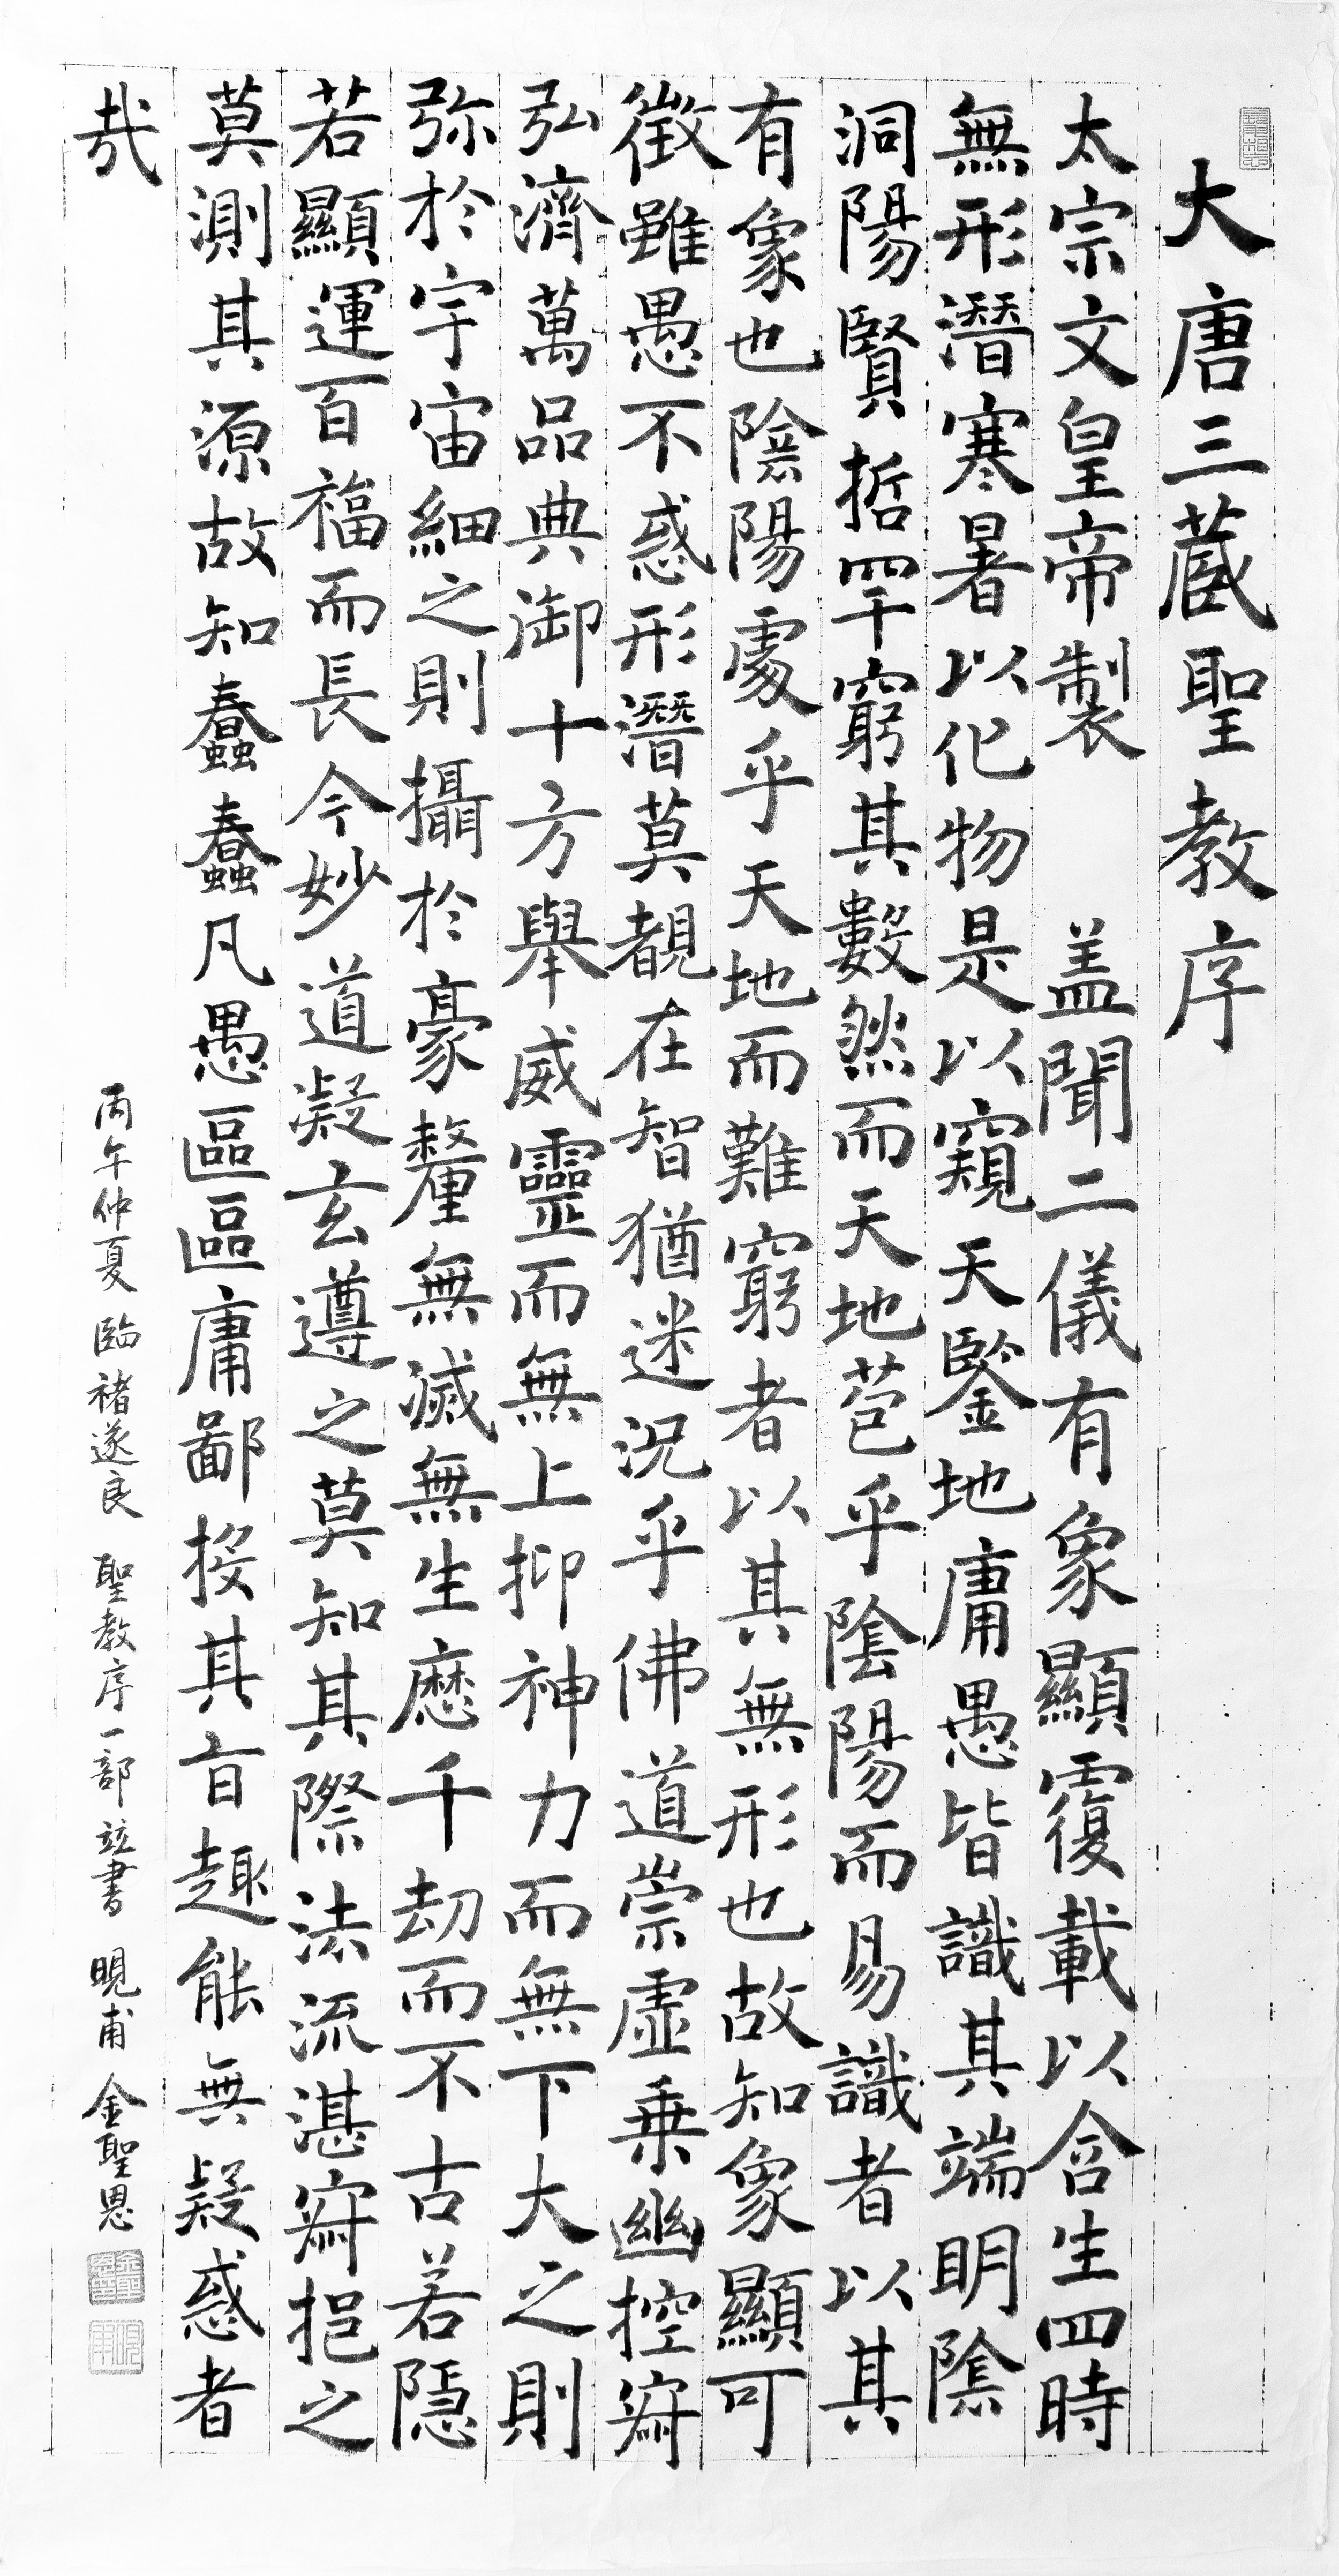 大唐三蔵聖教序
太宗文皇帝製 盖聞二儀有象顯覆載以含生四時
無形潛寒暑以化物是以窺天鑒地庸愚皆識其端明陰
洞陽賢哲罕窮其數然而天地苞乎陰陽而易識者以其
有象也陰陽處乎天地而難窮者以其無形也故知象顯可
徵雖愚不惑形潛莫覩在智猶迷況乎佛道崇虛乗幽控寂
弘濟萬品典御十方舉威靈而無上抑神力而無下大之則
弥於宇宙細之則攝於豪釐無滅無生歴千劫而不古若隱
若顯運百福而長今妙道凝玄遵之莫知其際法流湛寂挹之
莫測其源故知蠢蠢凡愚區區庸鄙投其旨趣能無疑惑者
哉
丙午仲夏 臨褚遂良 聖教序一部 竝書 晛甫 金聖恩